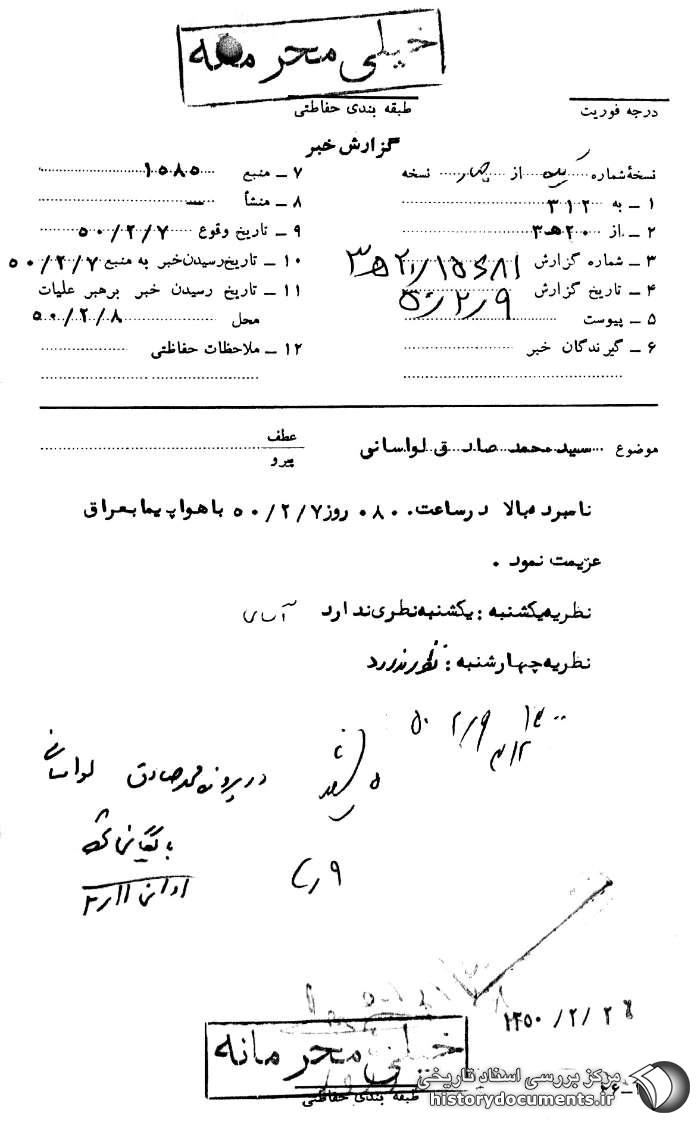 خیلی محرمانه
طبقه بندی حفاظتی
درجه فوریت
گزارش خبر
نسخهٔ شماره یک از چهار نسخه
۱ ــ به ۳۱۲
۲ ــ از ۲۰ھ۳
۳ ــ شماره گزارش
۴ ــ تاریخ گزارش ۵۰/۲/۹
۵ ــ پیوست
۶ ــ گیرندگان خبر
۷ ــ منبع ۱۵۸۵
۸ ــ منشأ ــ
۹ ــ تاریخ وقوع ۵۰/۲/۷
۱۰ ــ تاریخ رسیدن خبر به منبع ۵۰/۲/۷
۱۱ ــ تاریخ رسیدن خبر برهبر عملیات
محل ۵۰/۲/۸
۱۲ ــ ملاحظات حفاظتی
موضوع سید محمد صادق لواسانی
عطف
پیرو
نامبرده بالا در ساعت ۰۸۰۰ روز ۵۰/۲/۷ با هواپیما بعراق
عزیمت نمود .
نظریه یکشنبه : یکشنبه نظری ندارد
نظریه چهارشنبه : نظری ندارد
۵۰/۲/۹
در پرونده محمد صادق لواسانی
بایگانی شود
۹/۲
۱۳۵۰/۲/۲
خیلی محرمانه
طبقه بندی حفاظتی
مرکز بررسی اسناد تاریخی
historydocuments.ir